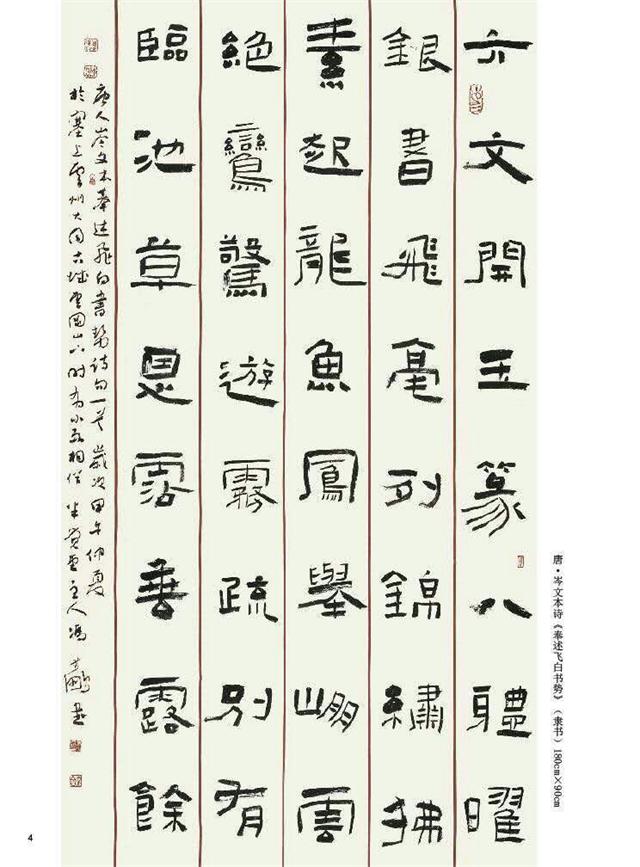 六文開玉篆八體曜
銀書飛毫列錦繡拂
素起龍魚鳳舉崩雲
絕鸞驚遊霧疏別有
臨池草恩霑垂露餘
唐人岑文本奉述飛白書勢詩句一首 歲次甲午仲夏
於塞上雲州大同古城雲岡山下時有小雨相
唐·岑文本诗《奉述飞白书势》（隶书）180cm×90cm
4